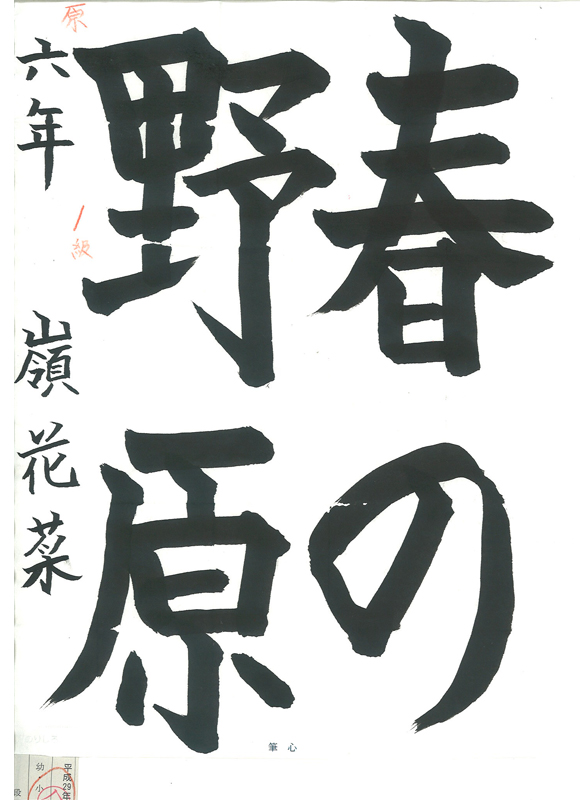 春の
野原
六年 嶺花菜
原
1級
筆心
平成29年
幼・小
段